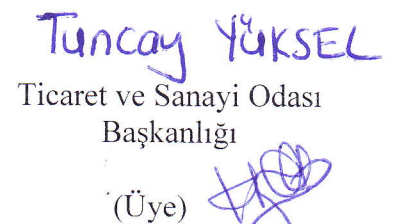 Tuncay YÜKSEL
Ticaret ve Sanayi Odası
Başkanlığı
(Üye)